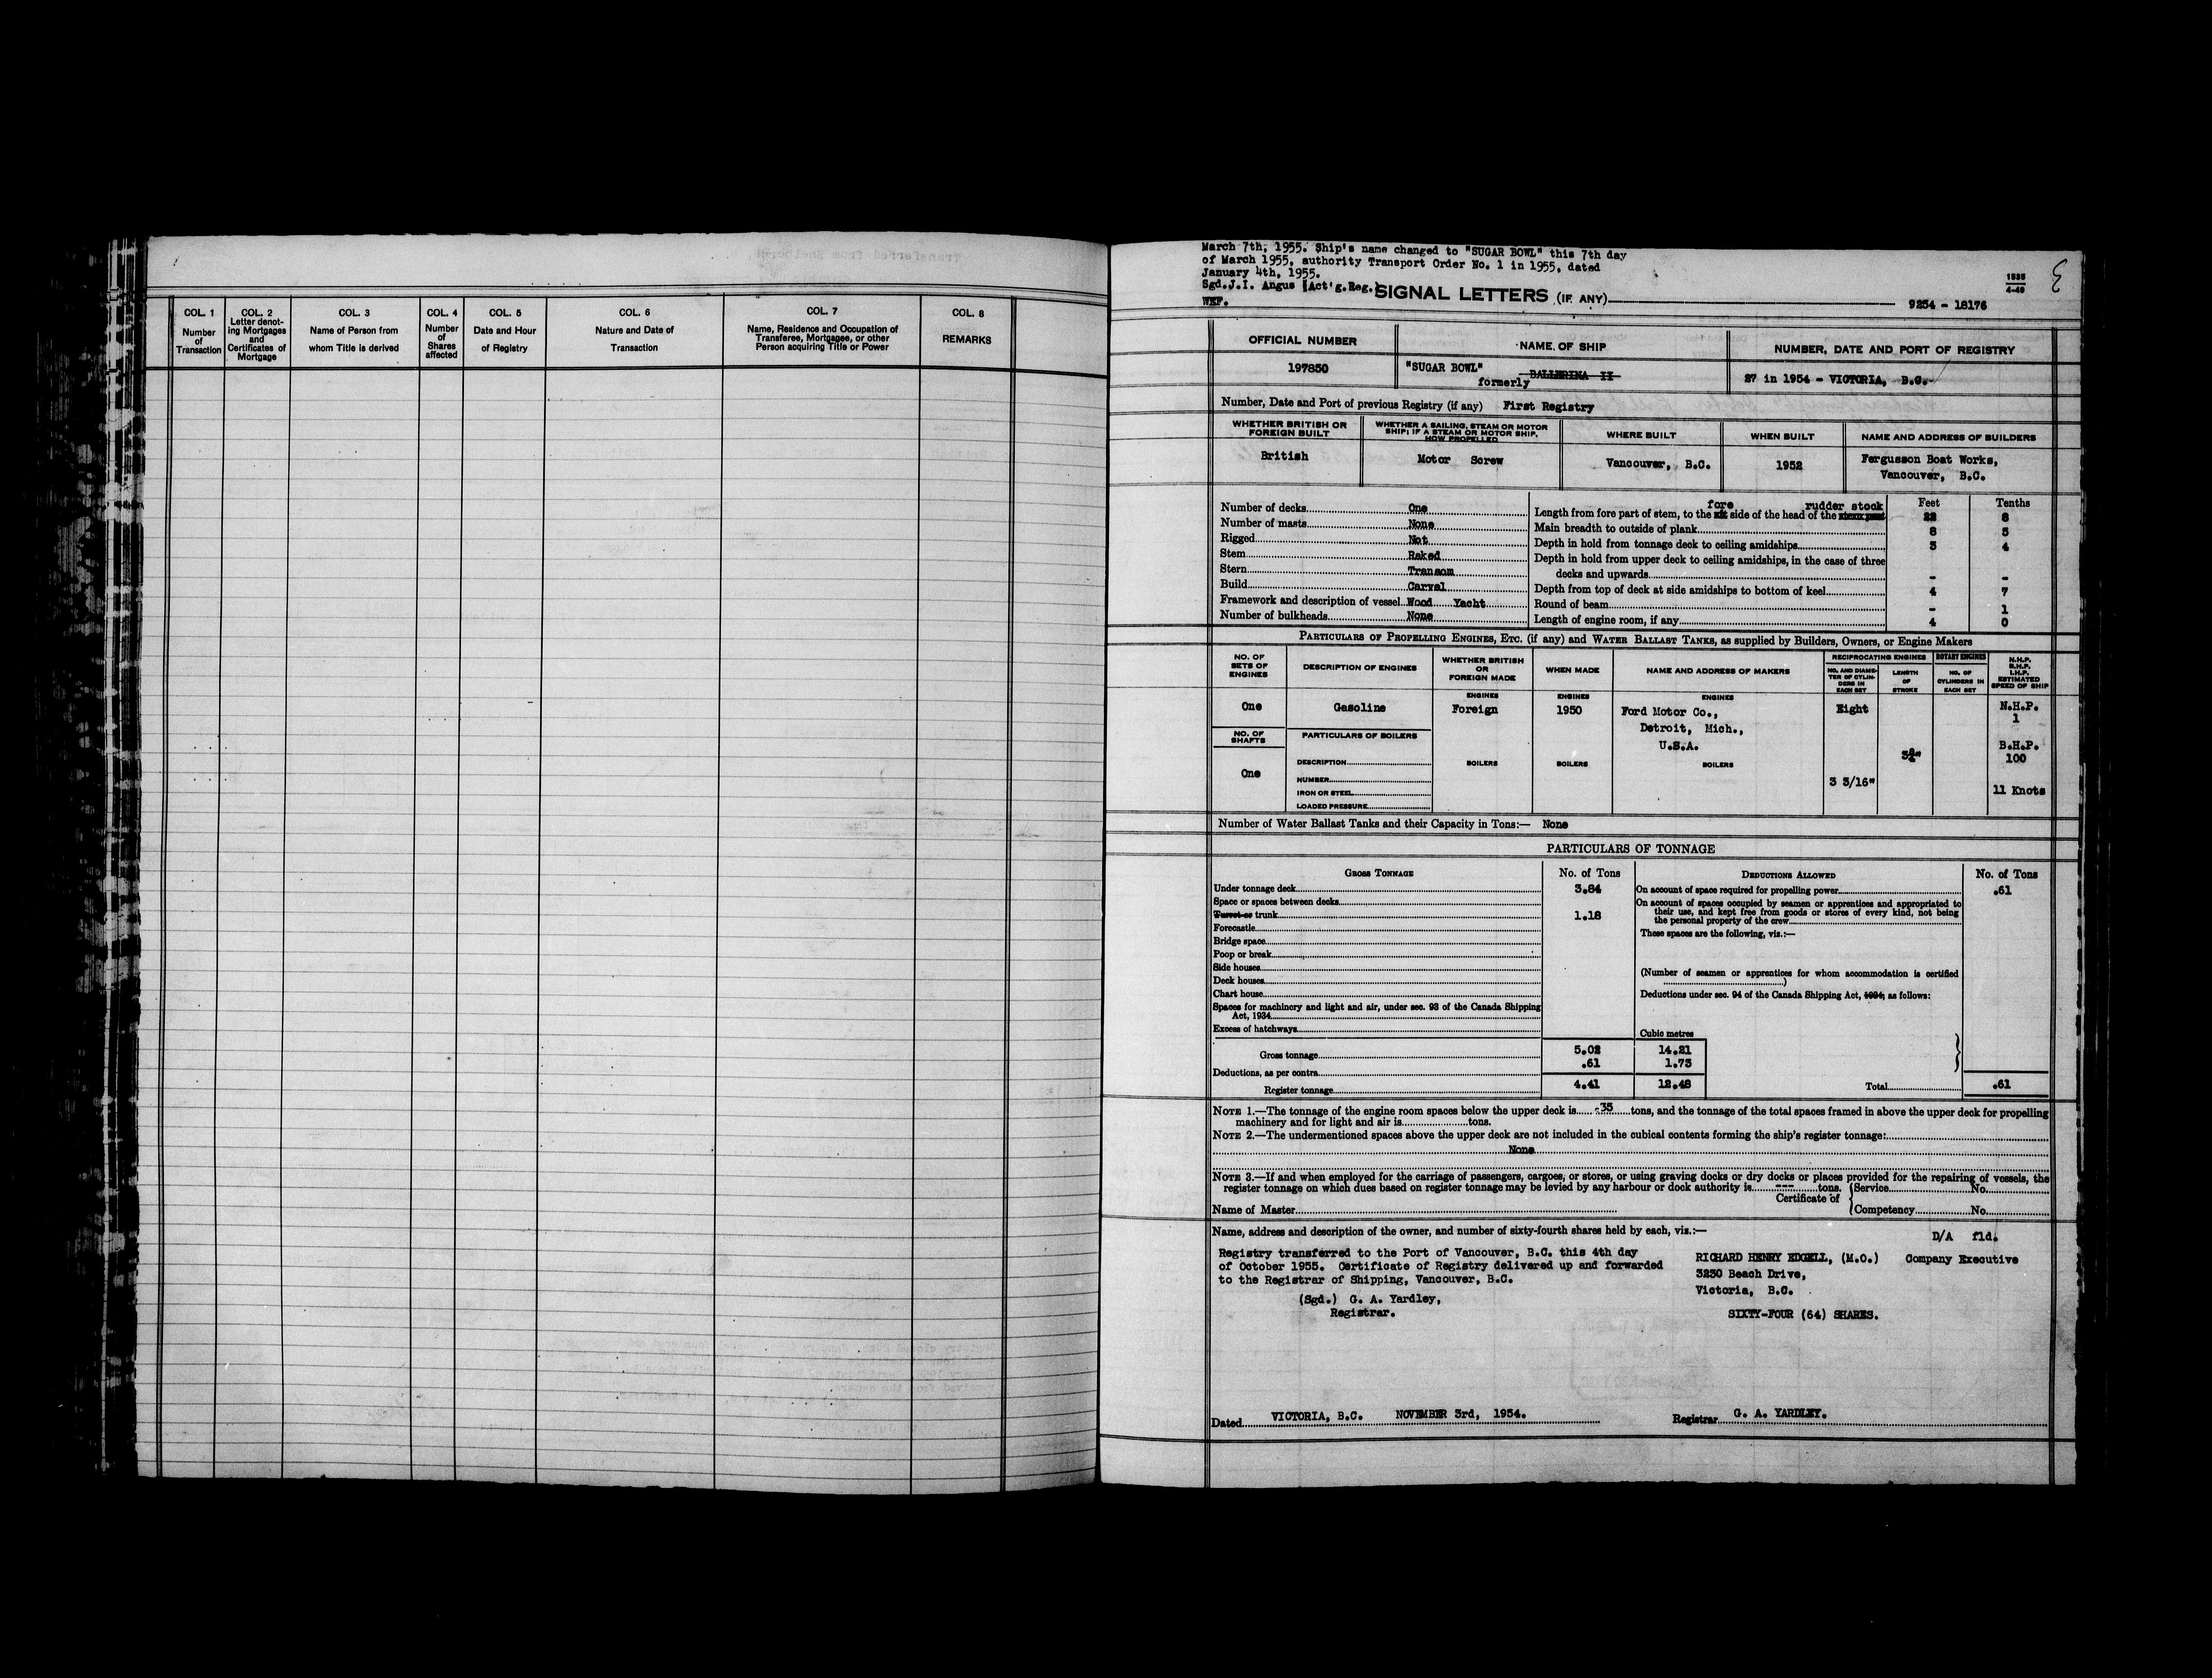 COL. 1
Number
of
Transaction
COL. 2
Letter denot-
ing Mortgages
and
Certificates of
Mortgage
COL. 3
Name of Person from
whom Title is derived
COL. 4
Number
of
Shares
affected
COL. 5
Date and Hour
of Registry
COL. 6
Nature and Date of
Transaction
COL. 7
Name, Residence and Occupation of
Transferee, Mortgagee, or other
Person acquiring Title or Power
COL. 8
REMARKS
March 7th, 1955. Ship's name changed to "SUGAR BOWL" this 7th day
of March 1955, authority Transport Order No. 1 in 1955, dated
January 4th, 1955.
Sgd.J.I. Angus (Act'g.Reg.)
WEF.
SIGNAL LETTERS (IF ANY)
1835
4-49
3
9254 - 18176
OFFICIAL NUMBER
NAME OF SHIP
NUMBER, DATE AND PORT OF REGISTRY
197850
"SUGAR BOWL"
formerly BALLERINA II
27 in 1954 - VICTORIA, B.C.
Number, Date and Port of previous Registry (if any) First Registry
WHETHER BRITISH OR
FOREIGN BUILT
WHETHER A SAILING, STEAM OR MOTOR
SHIP; IF A STEAM OR MOTOR SHIP,
HOW PROPELLED
WHERE BUILT
WHEN BUILT
NAME AND ADDRESS OF BUILDERS
British
Motor Screw
Vancouver, B.C.
1952
Fergusson Boat Works,
Vancouver, B.C.
Number of decks One
Number of masts None
Rigged Not
Stem Raked
Stern Transom
Build Carvel
Framework and description of vessel Wood Yacht
Number of bulkheads None
Feet Tenths
fore rudder stock
Length from fore part of stem, to the aft side of the head of the stern post 22 8
Main breadth to outside of plank 8 5
Depth in hold from tonnage deck to ceiling amidships 3 4
Depth in hold from upper deck to ceiling amidships, in the case of three
decks and upwards - -
Depth from top of deck at side amidships to bottom of keel 4 7
Round of beam - 1
Length of engine room, if any 4 0
PARTICULARS OF PROPELLING ENGINES, ETC. (if any) and WATER BALLAST TANKS, as supplied by Builders, Owners, or Engine Makers
NO. OF
SETS OF
ENGINES
DESCRIPTION OF ENGINES
WHETHER BRITISH
OR
FOREIGN MADE
WHEN MADE
NAME AND ADDRESS OF MAKERS
RECIPROCATING ENGINES
NO. AND DIAME-
TER OF CYLIN-
DERS IN
EACH SET
LENGTH
OF
STROKE
ROTARY ENGINES
NO. OF
CYLINDERS IN
EACH SET
N.H.P.
B.H.P.
I.H.P.
ESTIMATED
SPEED OF SHIP
ENGINES
ENGINES
ENGINES
One
Gasoline
Foreign
1950
Ford Motor Co.,
Detroit, Mich.,
U.S.A.
Eight
N.H.P.
1
NO. OF
SHAFTS
PARTICULARS OF BOILERS
B.H.P.
100
3¾"
One
DESCRIPTION
NUMBER
IRON OR STEEL
LOADED PRESSURE
BOILERS
BOILERS
BOILERS
3 3/16"
11 Knots
Number of Water Ballast Tanks and their Capacity in Tons:— None
PARTICULARS OF TONNAGE
GROSS TONNAGE
No. of Tons
DEDUCTIONS ALLOWED
No. of Tons
Under tonnage deck 3.84
Space or spaces between decks
Turret or trunk 1.18
Forecastle
Bridge space
Poop or break
Side houses
Deck houses
Chart house
Spaces for machinery and light and air, under sec. 93 of the Canada Shipping
Act, 1934
Excess of hatchways
On account of space required for propelling power .61
On account of spaces occupied by seamen or apprentices and appropriated to
their use, and kept free from goods or stores of every kind, not being
the personal property of the crew
These spaces are the following, viz.:—
(Number of seamen or apprentices for whom accommodation is certified
)
Deductions under sec. 94 of the Canada Shipping Act, 1934, as follows:
Cubic metres
Gross tonnage 5.02 14.21
Deductions, as per contra .61 1.73
Register tonnage 4.41 12.48
Total .61
NOTE 1.—The tonnage of the engine room spaces below the upper deck is .35 tons, and the tonnage of the total spaces framed in above the upper deck for propelling
machinery and for light and air is tons.
NOTE 2.—The undermentioned spaces above the upper deck are not included in the cubical contents forming the ship's register tonnage:
None
NOTE 3.—If and when employed for the carriage of passengers, cargoes, or stores, or using graving docks or dry docks or places provided for the repairing of vessels, the
register tonnage on which dues based on register tonnage may be levied by any harbour or dock authority is ---- tons.
Certificate of
Service No.
Competency No.
Name of Master
Name, address and description of the owner, and number of sixty-fourth shares held by each, viz.:—
D/A fld.
Registry transferred to the Port of Vancouver, B.C. this 4th day
of October 1955. Certificate of Registry delivered up and forwarded
to the Registrar of Shipping, Vancouver, B.C.
(Sgd.) G. A. Yardley,
Registrar.
RICHARD HENRY EDGELL, (M.O.) Company Executive
3230 Beach Drive,
Victoria, B.C.
SIXTY-FOUR (64) SHARES.
Dated VICTORIA, B.C. NOVEMBER 3rd, 1954.
Registrar G. A. YARDLEY.